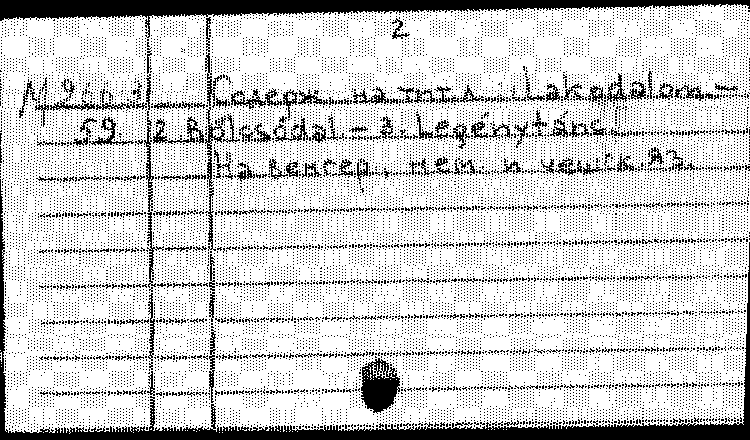 2
Содерж. на тит. л.: Lakodalom –
59 2. Bölcsődal – 3. Legénytánc.
На венгер., нем. и чешск. яз.